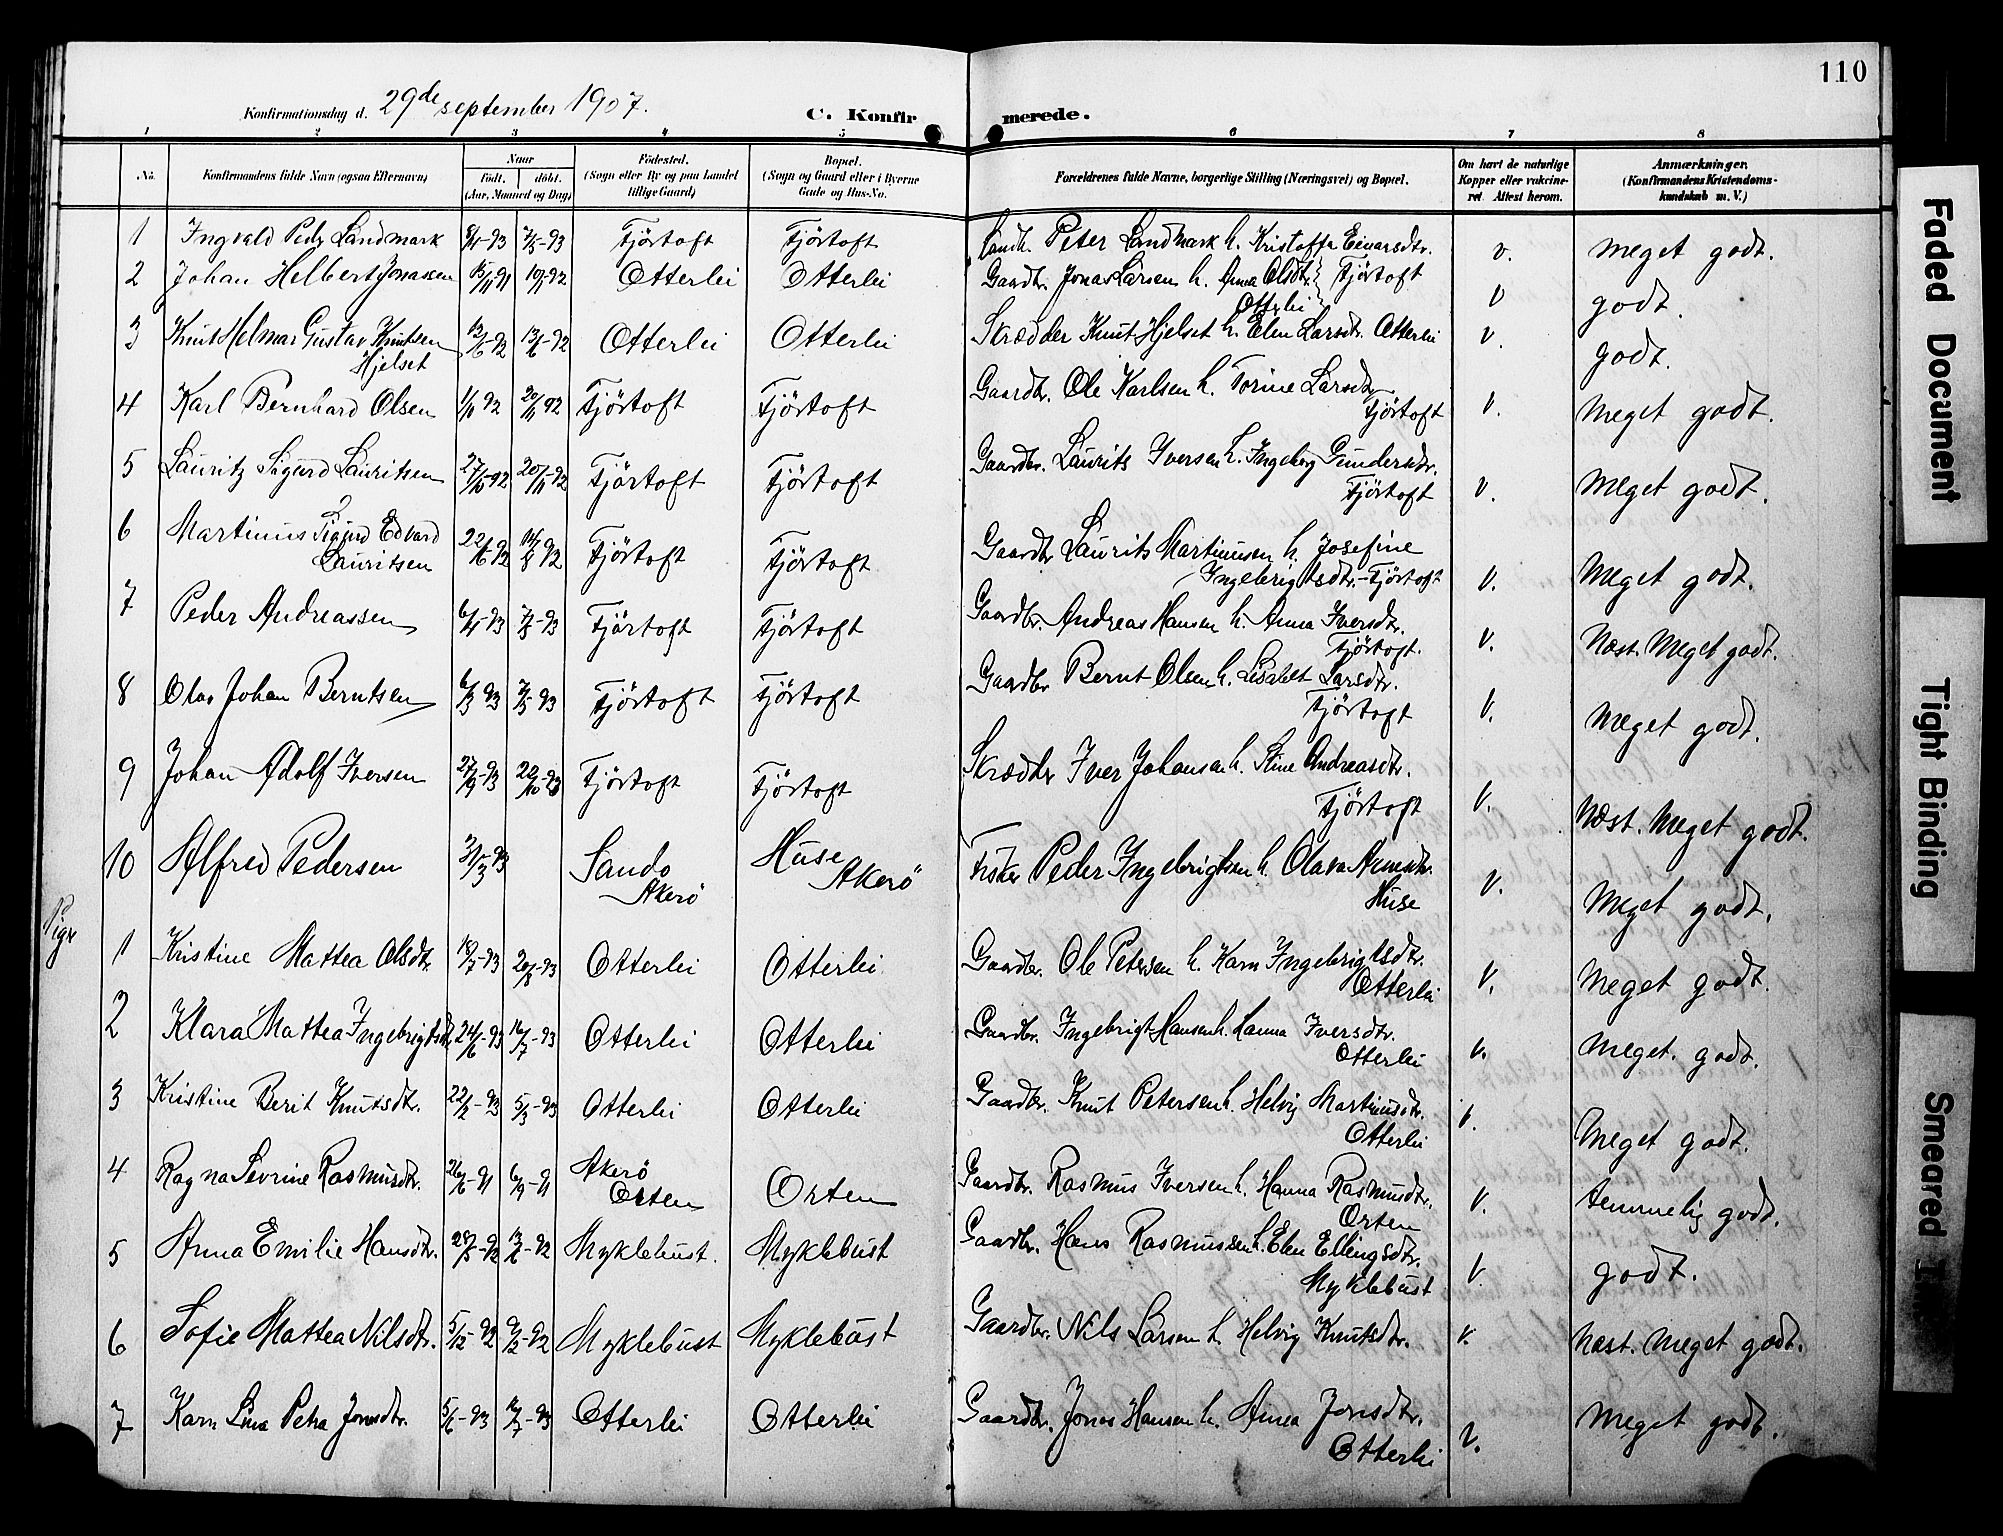 110
Konfirmationsdag d. 29de september 1907.
C. Konfirmerede.
1 2 3 4 5 6 7 8
No. Konfirmandens fulde Navn (ogsaa Efternavn) Naar født. døbt. (Aar, Maaned og Dag) Fødested. (Sogn eller By og paa Landet tillige Gaard) Bopæl. (Sogn og Gaard eller i Byerne Gade og Hus-No. Forældrenes fulde Navne, borgerlige Stilling (Næringsvei) og Bopæl. Om havt de naturlige Kopper eller vaccineret. Attest herom. Anmærkninger. (Konfirmandens Kristendomskundskab m. V.)
1 Ingvald Peder Landmark -93 7/5-93 Fjörtoft Fjörtoft Landh. Peter Landmark h. Kristoffa Einarsdtr. Fjörtoft v. Meget godt.
2 Johan Helbert Jonassen 15/11 91 10/1-92 Otterlei Otterlei Gaardbr. Jonas Larsen h. Anna Olsdtr. Otterlei v godt.
3 Knut Helmar Gustav Knutsen Hjelset 13/5-92 13/6-92 Otterlei Otterlei Skrædder Knut Hjelset h. Elen Larsdtr. Otterlei v. godt.
4 Karl Bernhard Olsen 92 20/11 92 Fjörtoft Fjörtoft Gaardbr. Ole Karlsen h. Torine Larsdtr Fjörtoft v. Meget godt.
5 Lauritz Sigurd Lauritsen 27/10-92 20/11-92 Fjörtoft Fjörtoft Gaardbr. Laurits Iversen h. Ingeborg Gundersdtr. Fjörtoft v. Meget godt.
6 Martinus Sigurd Edvard Lauritsen 22/6 92 14/8 92 Fjörtoft Fjörtoft Gaardbr Laurits Martinusen h. Josefine Ingebrigtsdtr. - Fjörtoft v. Meget godt.
7 Peder Andreassen 6/4-93 7/5-93 Fjörtoft Fjörtoft Gaardbr. Andreas Hansen h. Anna Iversdtr. Fjörtoft. v. Næst. Meget godt.
8 Olav Johan Berntsen 6/3 93 7/5 93 Fjörtoft Fjörtoft Gaardbr Bernt Olsen h. Lisabet Larsdtr. Fjörtoft v. Meget godt.
9 Johan Adolf Iversen 27/9-93 22/10-93 Fjörtoft Fjörtoft Skrædder Iver Johansen h. Stine Andreasdtr. Fjörtoft v. Næst. Meget godt.
10 Alfred Pedersen 31/3-93 Sandø Akerö Huse Akerö Fisker Peder Ingebrigtsen h. Olava Huse v. Meget godt.
Piger
1 Kristine Mattea Olsdtr. 18/7-93 20/8-93 Otterlei Otterlei Gaardbr. Ole Petersen h. Karn Ingebrigtsdtr. Otterlei v. Meget godt.
2 Klara Mattea Ingebrigtsdtr 24/6-93 16/7-93 Otterlei Otterlei Gaardbr. Ingebrigt Hansen h. Hanna Iversdtr. Otterlei v. Meget. godt.
3 Kristine Berit Knutsdtr. 22/2-93 5/3-93 Otterlei Otterlei Gaardbr. Knut Petersen h. Helvig Martinusdtr. Otterlei v. Meget godt.
4 Ragna Sevrine Rasmusdtr. 26/6-91 6/9-91 Akerö Orten Orten Gaardbr. Rasmus Iversen h. Hanna Rasmusdtr. Orten v. temmelig godt.
5 Anna Emilie Hansdtr. 28/5-92 12/6-92 Myklebust. Myklebust Gaardbr. Hans Rasmussen h. Elen Ellingsdtr. Myklebust v. godt.
6 Sofie Mattea Nilsdtr. 5/12-92 Myklebust Myklebust Gaardbr. Nils Larsen h. Helvig Knutsdtr. v. Næst. Meget godt.
7 Karn Lina Petra Jonsdtr. 5/6-93 -93 Otterlei Otterlei Gaardbr. Jonas Hansen h. Anna Jonsdtr. Otterlei v. Meget godt.
Faded Document
Tight Binding
Smeared Ink